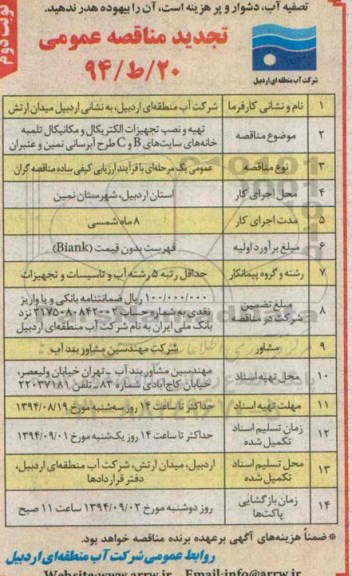 تصفیه آب، دشوار و پر هزینه است، آن را بیهوده هدر ندهید.
نوبت دوم
تجدید مناقصه عمومی
۹۴/ط/۲۰
شرکت آب منطقه‌ای اردبیل
۱ نام و نشانی کارفرما شرکت آب منطقه‌ای اردبیل، به نشانی اردبیل میدان ارتش
۲ موضوع مناقصه تهیه و نصب تجهیزات الکتریکال و مکانیکال تلمبه
خانه‌های سایت‌های B و C طرح آبرسانی نمین و عنبران
۳ نوع مناقصه عمومی یک مرحله‌ای با فرآیند ارزیابی کیفی ساده مناقصه گران
۴ محل اجرای کار استان اردبیل، شهرستان نمین
۵ مدت اجرای کار ۸ ماه شمسی
۶ مبلغ برآورد اولیه فهرست بدون قیمت (Biank)
۷ رشته و گروه پیمانکار حداقل رتبه ۵ رشته آب و تاسیسات و تجهیزات
۸ مبلغ تضمین
شرکت در مناقصه ۱۰۰/۰۰۰/۰۰۰ ریال ضمانتنامه بانکی و یا واریز
نقدی به شماره حساب ۲۱۷۵۰۸۰۸۴۲۰۰۲ نزد
بانک ملی ایران به نام شرکت آب منطقه‌ای اردبیل
۹ مشاور شرکت مهندسین مشاور بند آب
۱۰ محل تهیه اسناد مهندسین مشاور بند آب ـ تهران خیابان ولیعصر،
خیابان کاج آبادی شماره ۸۳ ـ تلفن ۲۲۰۳۷۱۸۱
۱۱ مهلت تهیه اسناد حداکثر تا ساعت ۱۴ روز سه‌شنبه مورخ ۱۳۹۴/۰۸/۱۹
۱۲ زمان تسلیم اسناد
تکمیل شده حداکثر تا ساعت ۱۴ روز یک‌شنبه مورخ ۱۳۹۴/۰۹/۰۱
۱۳ محل تسلیم اسناد
تکمیل شده اردبیل، میدان ارتش، شرکت آب منطقه‌ای اردبیل،
دفتر قراردادها
۱۴ زمان بازگشایی
پاکت‌ها روز دوشنبه مورخ ۱۳۹۴/۰۹/۰۲ ساعت ۱۱ صبح
* ضمناً هزینه‌های آگهی برعهده برنده مناقصه خواهد بود.
روابط عمومی شرکت آب منطقه‌ای اردبیل
Website:www.arrw.ir Email:info@arrw.ir